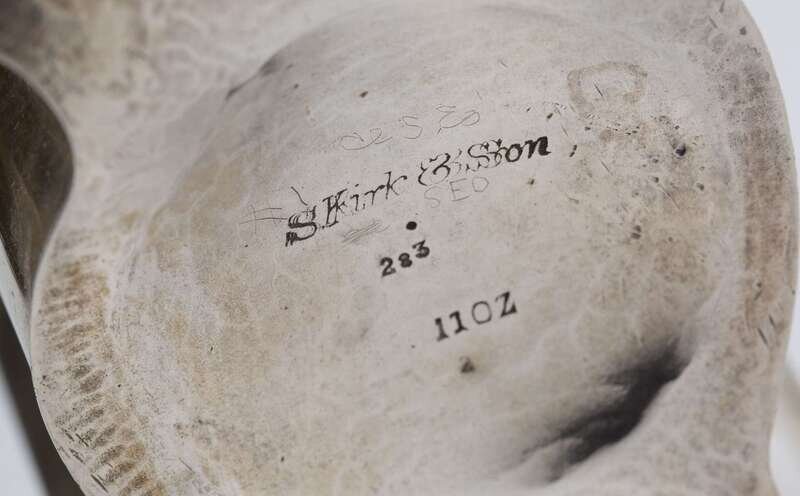 S. Kirk & Son
SEO
283
11OZ